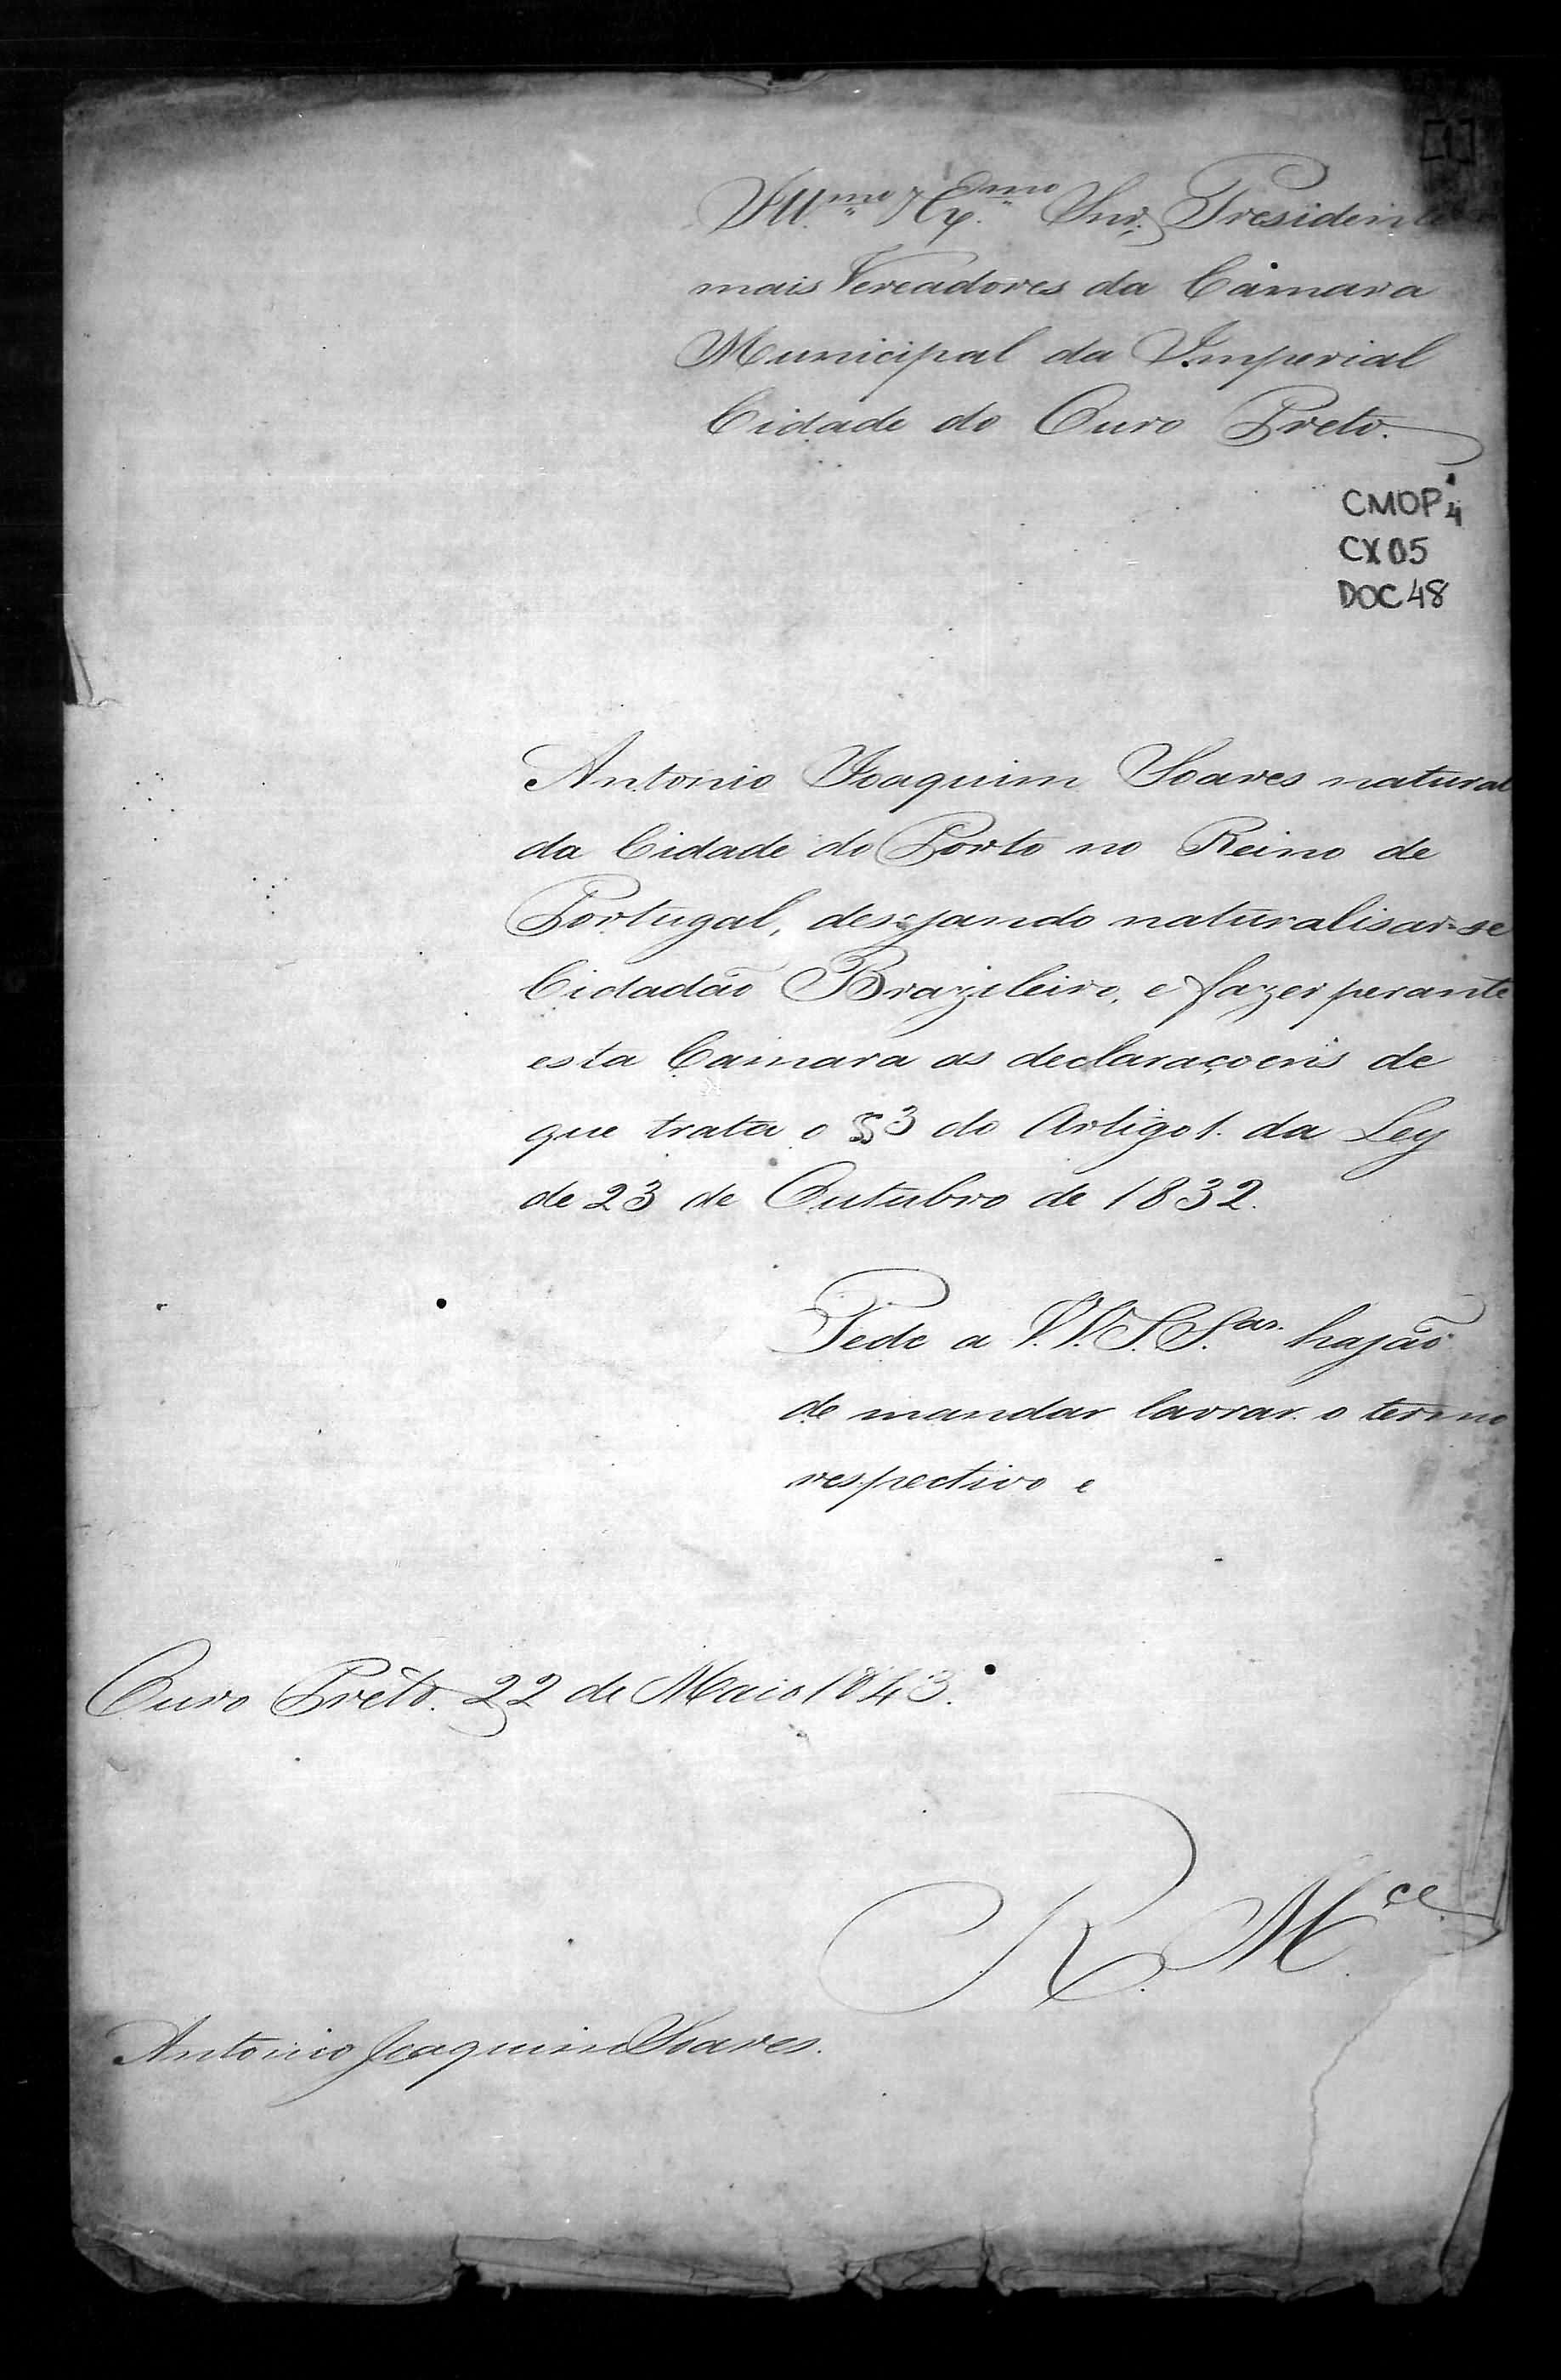 [1]
Ill.mo e Ex.mo Snr. Presidente e
mais Vereadores da Câmara
Municipal da Imperial
Cidade do Ouro Preto.
CMOP 4
CX 05
DOC 48
Antonio Joaquim Soares natural
da Cidade do Porto no Reino de
Portugal, desejando naturalisar-se
Cidadão Brazileiro, e fazer perante
esta Camara as declaraçoens de
que trata o §3 do Artigo 1. da Ley
de 23 de Outubro de 1832.
Pede a V.V.S.S.as hajão
de mandar lavrar o termo
respectivo e
Ouro Prêto. 22 de Maio 1843.
R. M.ce
Antonio Joaquim Soares.